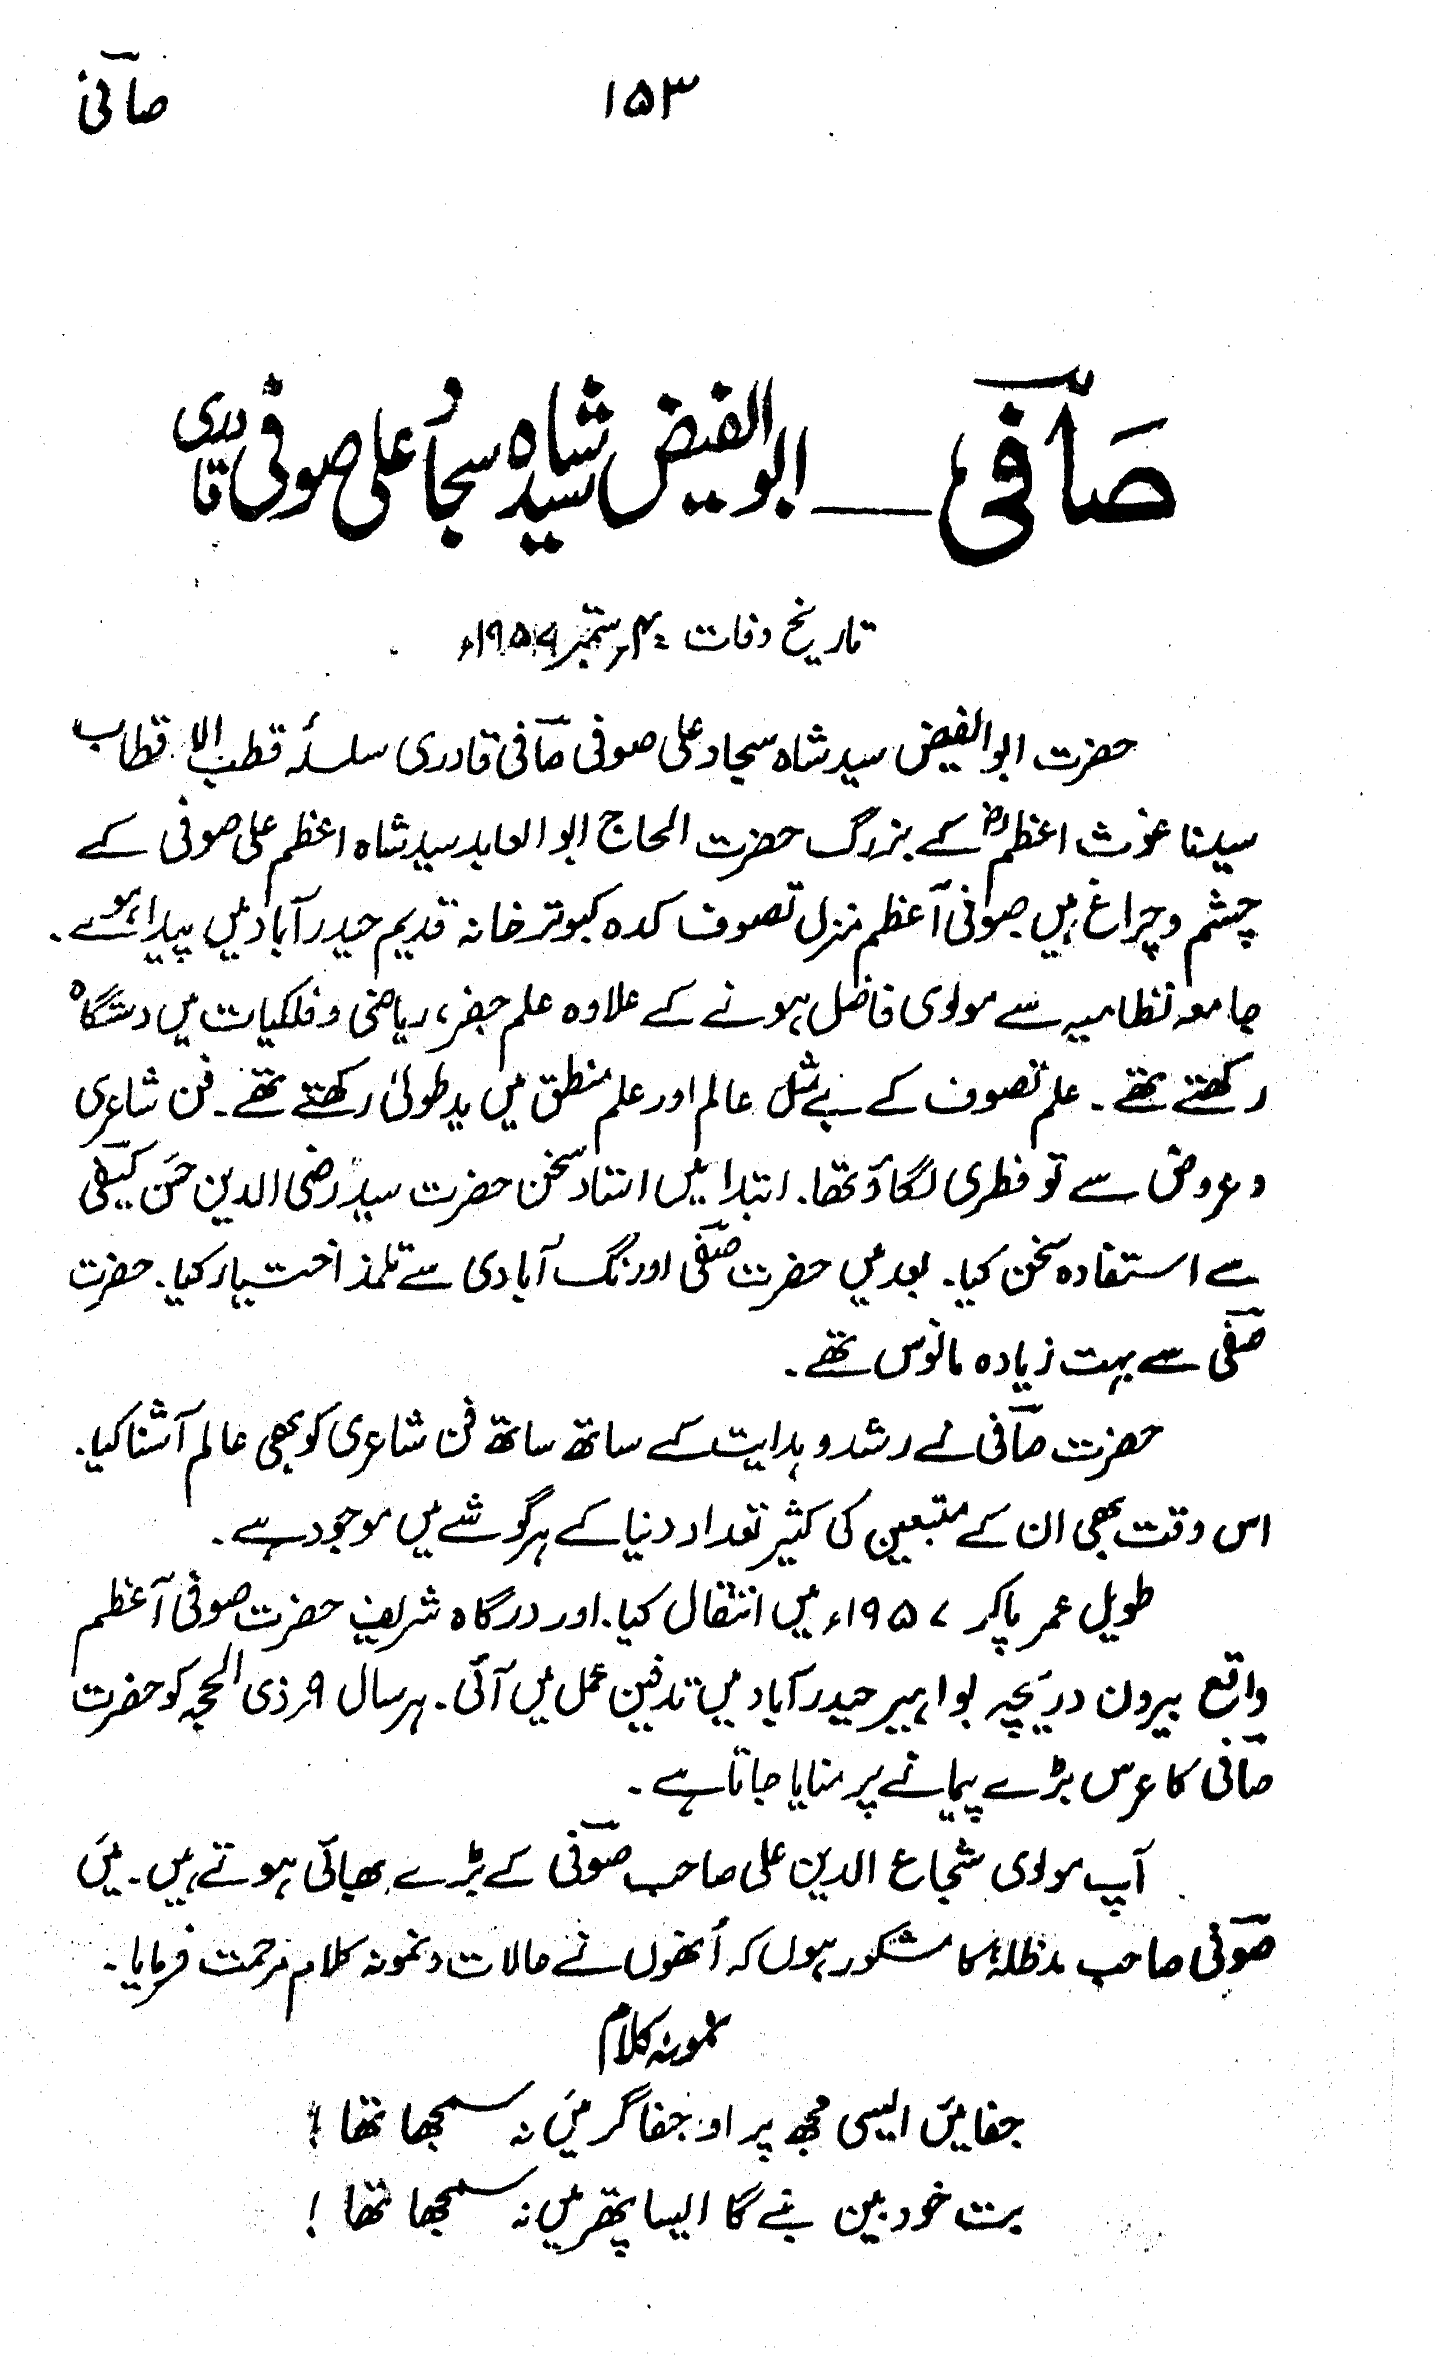 صافی
۱۵۳
صافی — ابوالفیض سید شاہ سجاد علی صوفی قادری
تاریخ وفات ستمبر
حضرت ابوالفیض سید شاہ سجاد علی صوفی صافی قادری سلسلۂ قطب الاقطاب
سیدنا غوث اعظمؓ کے بزرگ حضرت الحاج ابوالعابد سید شاہ اعظم علی صوفی کے
چشم و چراغ ہیں صوفی اعظم منزل تصوف کدہ کبوتر خانہ قدیم حیدرآباد میں پیدا ہوے۔
جامعہ نظامیہ سے مولوی فاضل ہونے کے علاوہ علم جفر، ریاضی و فلکیات میں دستگاہ
رکھتے تھے۔ علم تصوف کے بے مثل عالم اور علم منطق میں ید طولیٰ رکھتے تھے۔ فن شاعری
و عروض سے تو فطری لگاؤ تھا۔ ابتدا میں استاد سخن حضرت سید رضی الدین حسن کیفی
سے استفادہ سخن کیا۔ بعد میں حضرت صفی اورنگ آبادی سے تلمذ اختیار کیا۔ حضرت
صفی سے بہت زیادہ مانوس تھے۔
حضرت صافی نے رشد و ہدایت کے ساتھ ساتھ فن شاعری کو بھی عالم آشنا کیا۔
اس وقت بھی ان کے متبعین کی کثیر تعداد دنیا کے ہر گوشے میں موجود ہے۔
طویل عمر پاکر ۱۹۵۷ء میں انتقال کیا۔ اور درگاہ شریف حضرت صوفی اعظم
واقع بیرون دریچہ بواہیر حیدرآباد میں تدفین عمل میں آئی۔ ہر سال ۹ر ذی الحجہ کو حضرت
صافی کا عرس بڑے پیمانے پر منایا جاتا ہے۔
آپ مولوی شجاع الدین علی صاحب صوفی کے بڑے بھائی ہوتے ہیں۔ میں
صوفی صاحب مدظلہٗ کا مشکور ہوں کہ اُنھوں نے حالات و نمونہ کلام مرحمت فرمایا۔
نمونہ کلام
جفایٔں ایسی مجھ پر او جفاگر میں نہ سمجھا تھا!
بت خود بین بنے گا ایسا پتھر میں نہ سمجھا تھا!